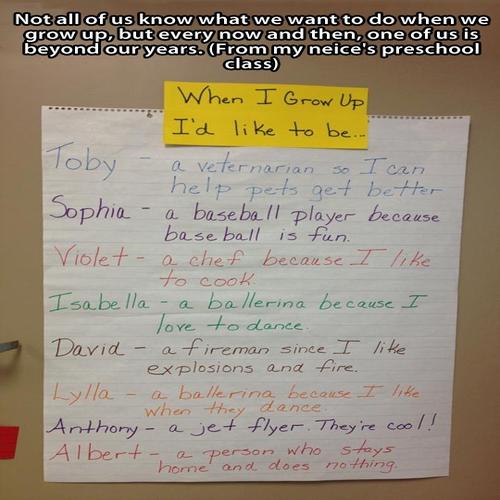 Not all of us know what we want to do when we
grow up, but every now and then, one of us is
beyond our years. (From my neice's preschool
class)
When I Grow Up
I'd like to be...
Toby - a veternarian so I can
help pets get better
Sophia - a baseball player because
baseball is fun.
Violet - a chef because I like
to cook.
Isabella - a ballerina because I
love to dance.
David - a fireman since I like
explosions and fire.
Lylla - a ballerina because I like
when they dance.
Anthony - a jet flyer. They're cool!
Albert - a person who stays
home and does nothing.